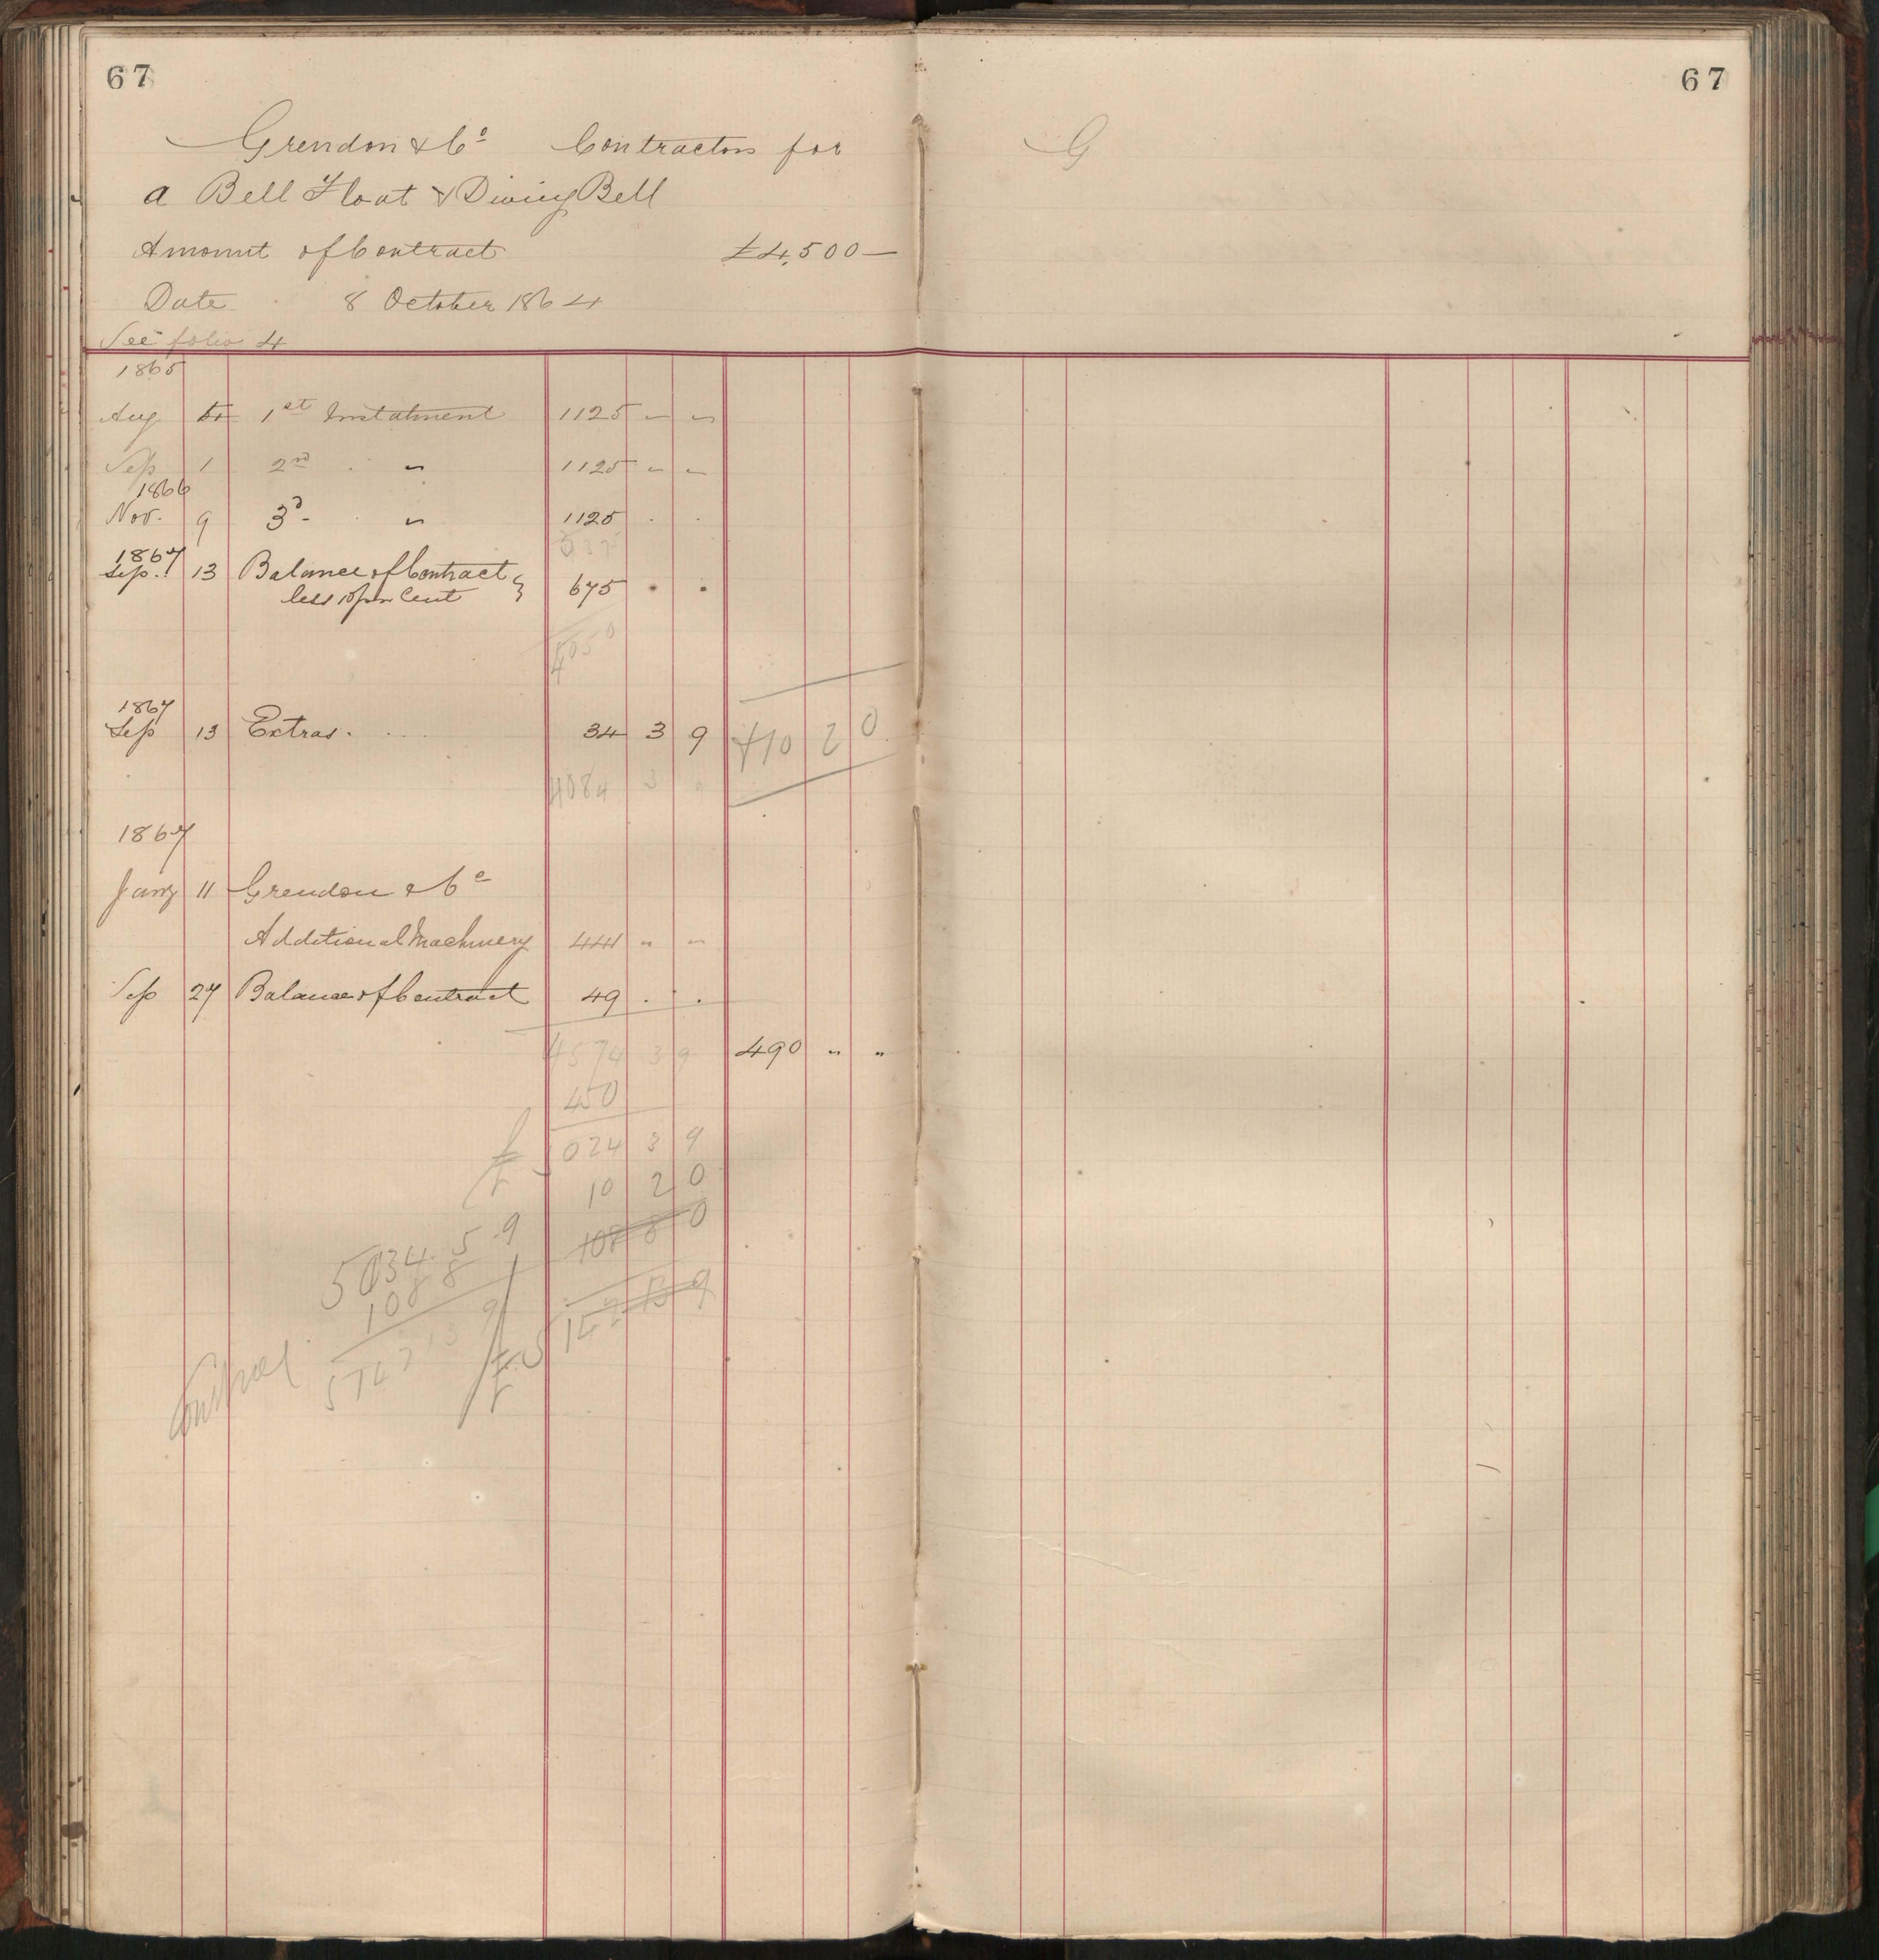 67
67
Grendon & Co Contractors for
G
a Bell Float & Diving Bell
Amount of Contract £4,500 —
Date 8 October 1864
See folio 4
1865
Aug 1st Instalment 1125 " "
Sep 1 2nd " 1125 " "
1866
Nov. 9 3d - " 1125 . .
3375
1867
Sep. 13 Balance of Contract }
less 10 per Cent 675 . .
4050
1867
Sep 13 Extras . . . . 34 3 9
10 2 0
4084 3 9
1867
Jany 11 Grendon & Co
Additional Machinery 441 " "
Sep 27 Balance of Contract 49 . .
4574 3 9 490 " "
450
£5024 3 9
10 2 0
108 8 0
5034. 5. 9
108 8
5142 13 9
£5142 13 9